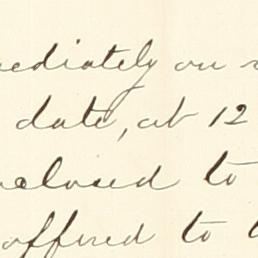 mediately on
date, at 12
nclosed to
offered to